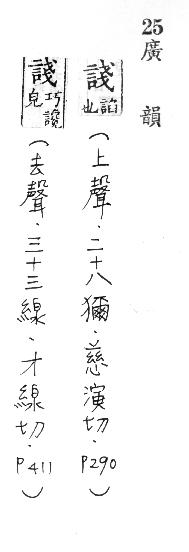 25廣韻
諓諂也(上聲.二十八獮.慈演切.P290)
諓巧讒皃(去聲.三十三線.才線切.P411)